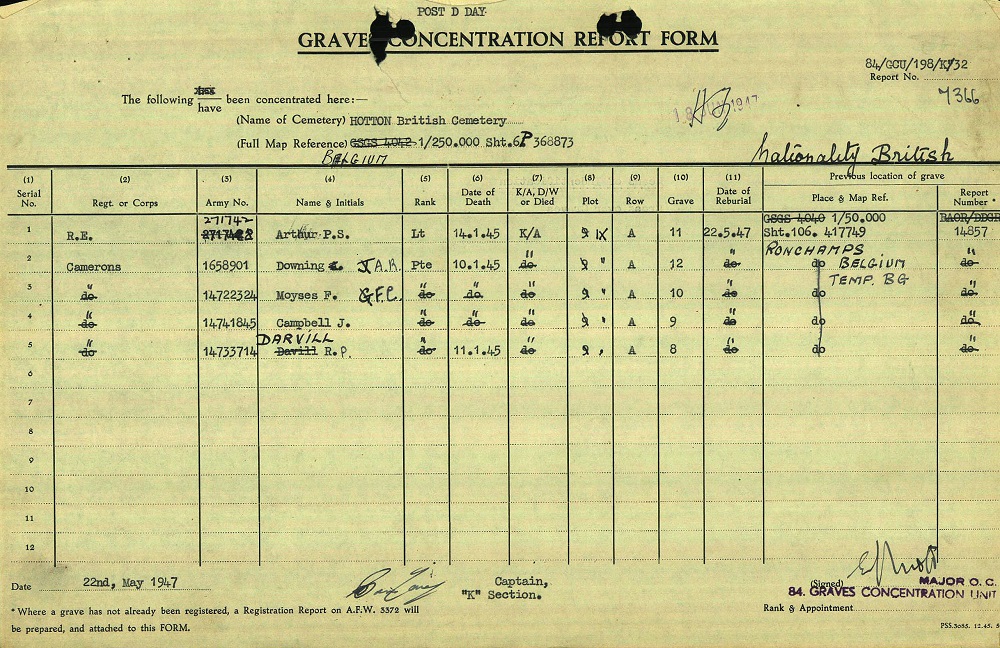 POST D DAY
GRAVES CONCENTRATION REPORT FORM
84/GCU/198/K/32
Report No.
7366
The following has have been concentrated here:—
18 JUN 1947
(Name of Cemetery) HOTTON British Cemetery
(Full Map Reference) GSGS 4042 1/250.000 Sht.6P 368873
BELGIUM
Nationality British
(1) (2) (3) (4) (5) (6) (7) (8) (9) (10) (11) Previous location of grave
Serial No. Regt. or Corps Army No. Name & Initials Rank Date of Death K/A, D/W or Died Plot Row Grave Date of Reburial Place & Map Ref. Report Number *
271742 GSGS 4040 1/50.000 BAOR/DDGR
1 R.E. Arthur P.S. Lt 14.1.45 K/A 9 IX A 11 22.5.47 Sht.106. 417749 14857
RONCHAMPS
2 Camerons 1658901 Downing J.A.R. Pte 10.1.45 do " 9 " A 12 do " do BELGIUM do "
TEMP. BG
3 do " 14722324 Moyses F. G.F.C. do " do " do " 9 " A 10 do " do do "
4 do " 14741845 Campbell J. do " do " do " 9 " A 9 do " do do "
DARVILL
5 do " 14733714 Davill R.P. do " 11.1.45 do " 9 " A 8 do " do do "
6
7
8
9
10
11
12
Date 22nd, May 1947
Captain,
"K" Section.
(Signed)
MAJOR O. C.
84. GRAVES CONCENTRATION UNIT
Rank & Appointment
* Where a grave has not already been registered, a Registration Report on A.F.W. 3372 will
be prepared, and attached to this FORM.
PSS.3685. 12.45. 5